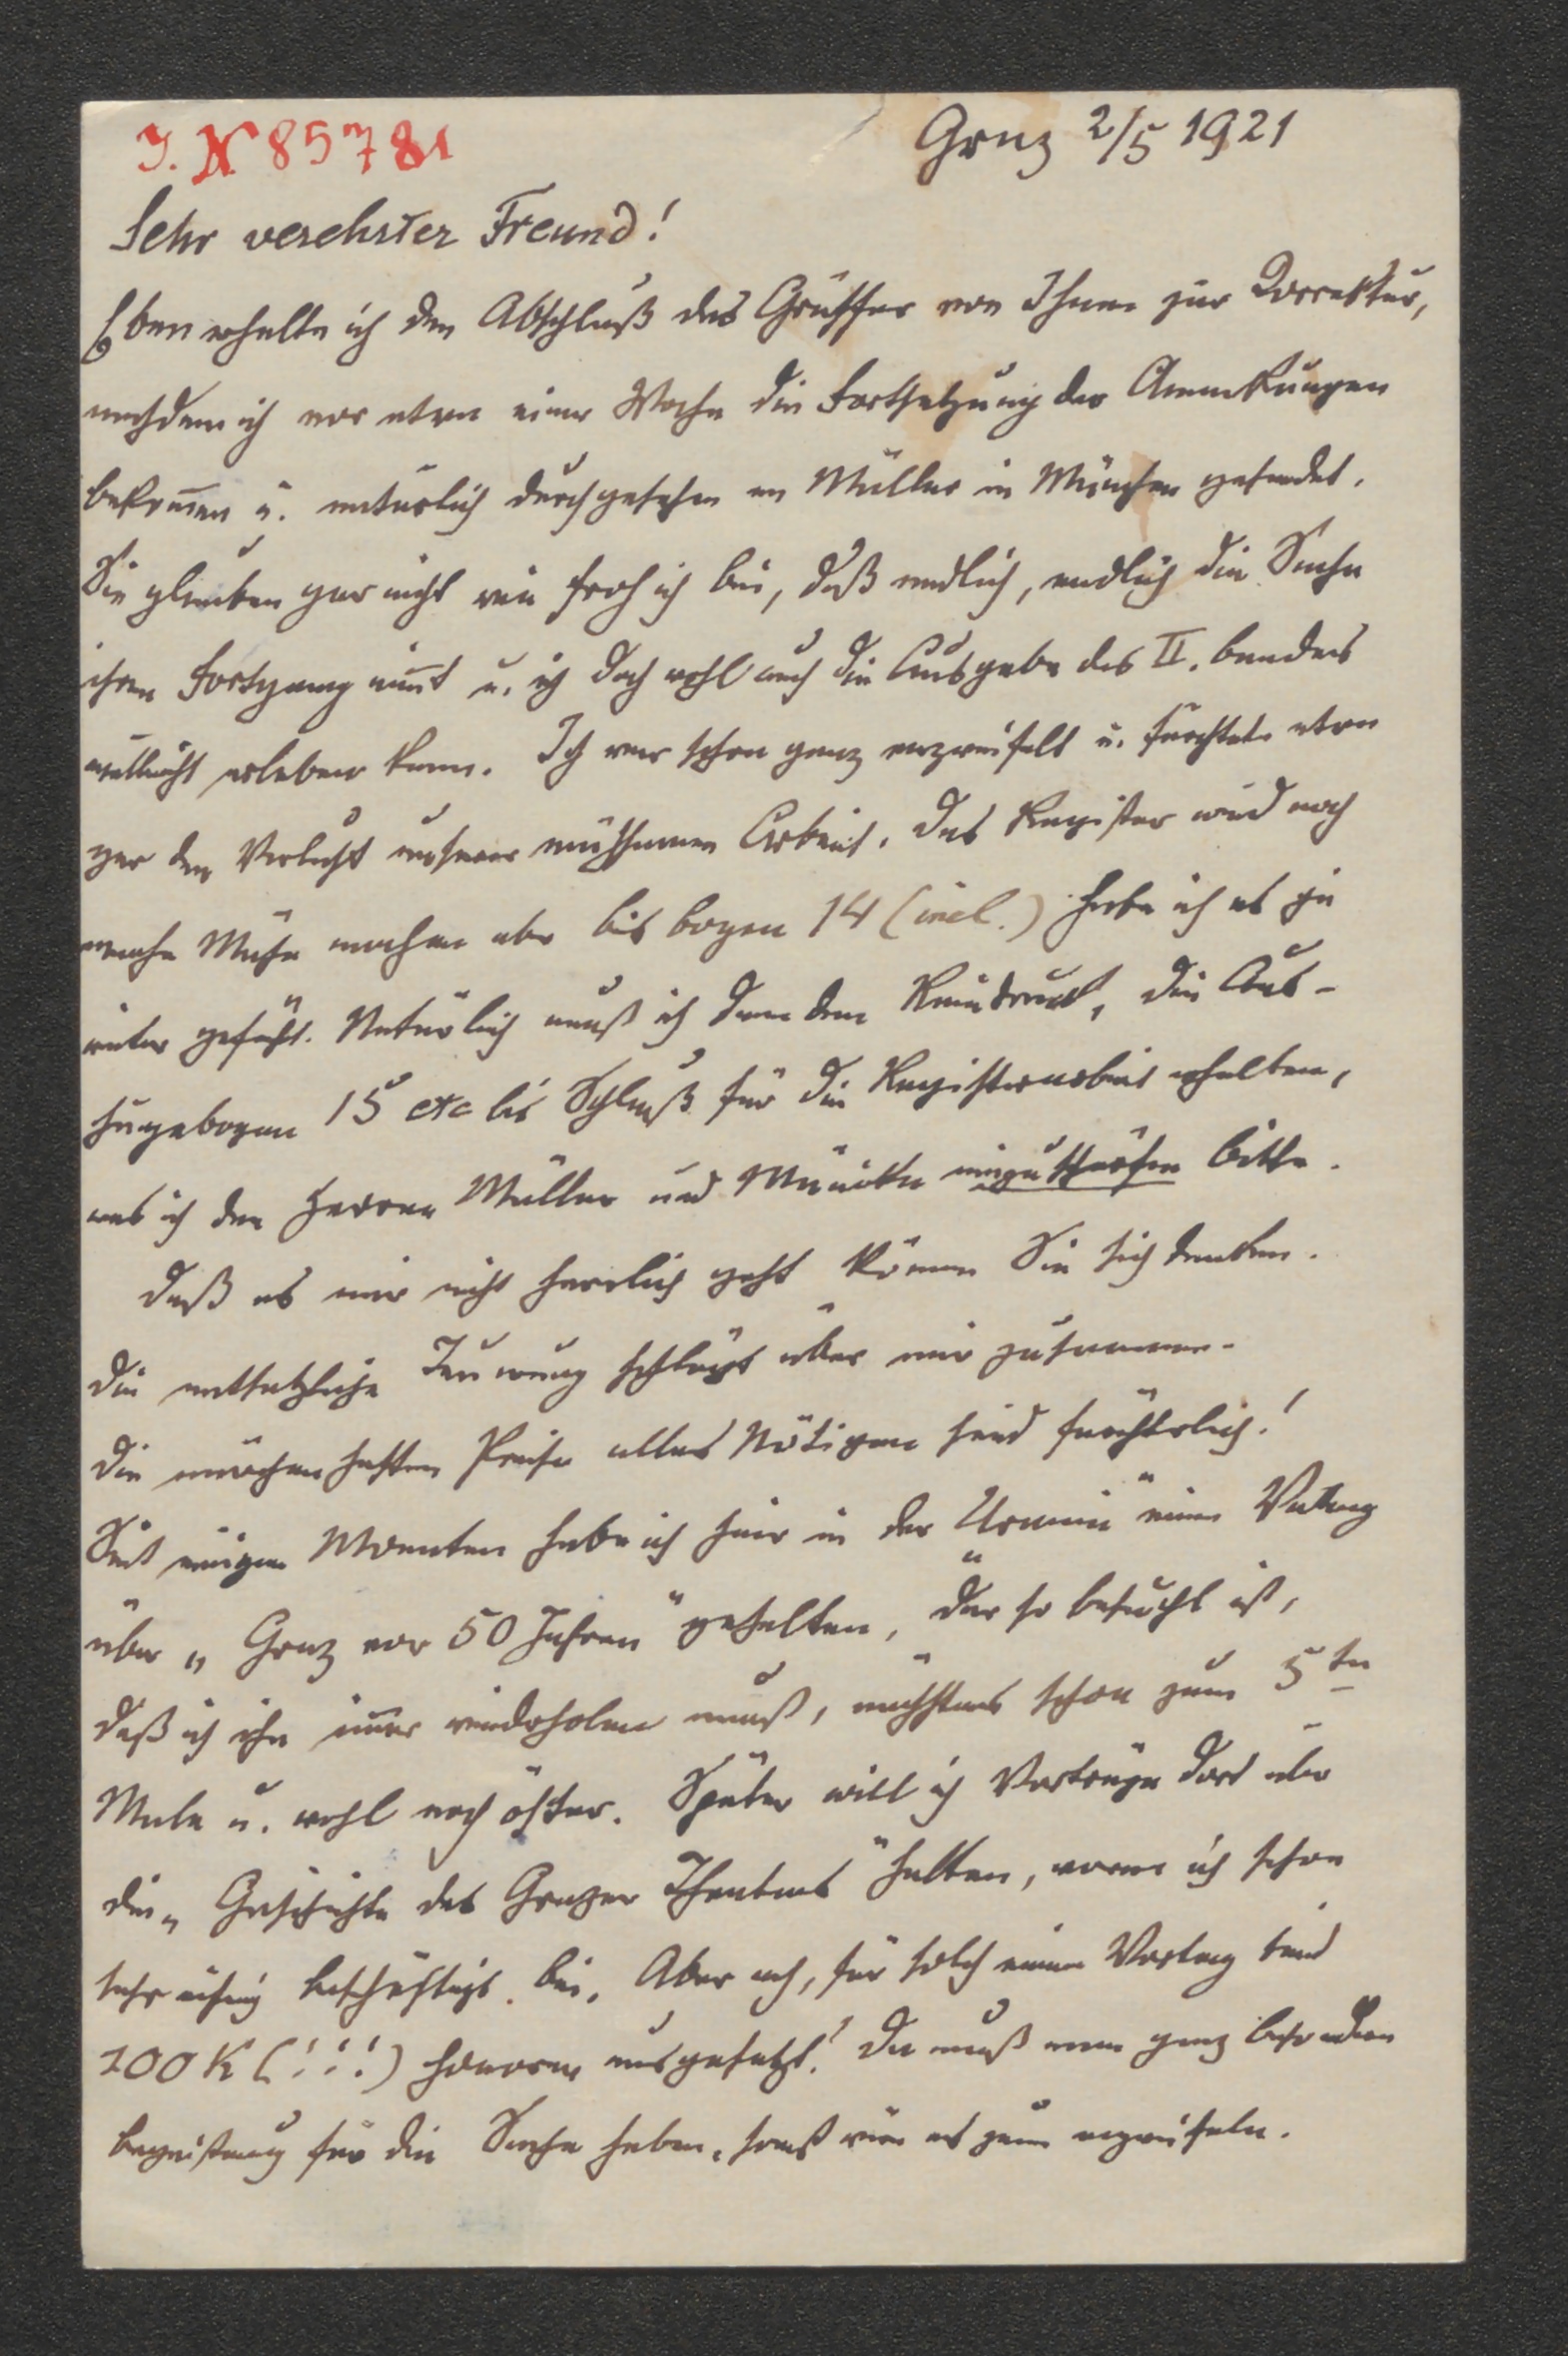 I. N 85781
Graz 2/5 1921
Sehr verehrter Freund!
Eben erhalte ich den Abschluß des Gräffer von Ihnen zur Korrektur,
nachdem ich vor etwa einer Woche die Fortsetzung der Anmerkungen
bekom̅en u. natürlich durchgesehen an Müller in München gesendet.
Sie glauben gar nicht wie froh ich bin, daß endlich, endlich die Sache
ihren Fortgang nim̅t u. ich doch wohl auch die Ausgabe des II. Bandes
vielleicht erleben kann. Ich war schon ganz verzweifelt u. fürchtete etwa
gar den Verlust unserer mühsamen Arbeit. Das Register wird noch
manche Mühe machen aber bis Bogen 14 (incl.) habe ich es
weiter geführt. Natürlich muß ich dann den Reindruck, die Aus-
hängebogen 15 etc bis Schluß für die Registerarbeit erhalten,
was ich den Herren Müller und einzuschärfen bitte.
Daß es mir nicht herrlich geht können Sie sich denken.
Die entsetzliche Teuerung schlägt über mir zusammen.
Die märchenhaften Preise alles Nötigen sind fürchterlich!
Seit einigen Monaten habe ich hier in der "Urania" einen Vortrag
über "Graz vor 50 Jahren" gehalten, der so besucht ist,
daß ich ihn im̅er wiederholen muß, nächstens schon zum 5ten
Male u. wohl noch öfter. Später will ich Vorträge dort über
die "Geschichte des Grazer Theaters" halten, woran ich schon
sehr eifrig beschäftigt bin. Aber ach, für solch einen Vortrag sind
200 K (!!!) Honorar ausgesetzt! Da muß man ganz besondere
Begeisterung für die Sache haben, sonst wär es zum verzweifeln.